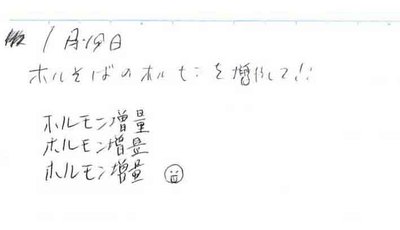 1月19日
ホルそばのホルモンを増やして!!
ホルモン増量
ホルモン増量
ホルモン増量